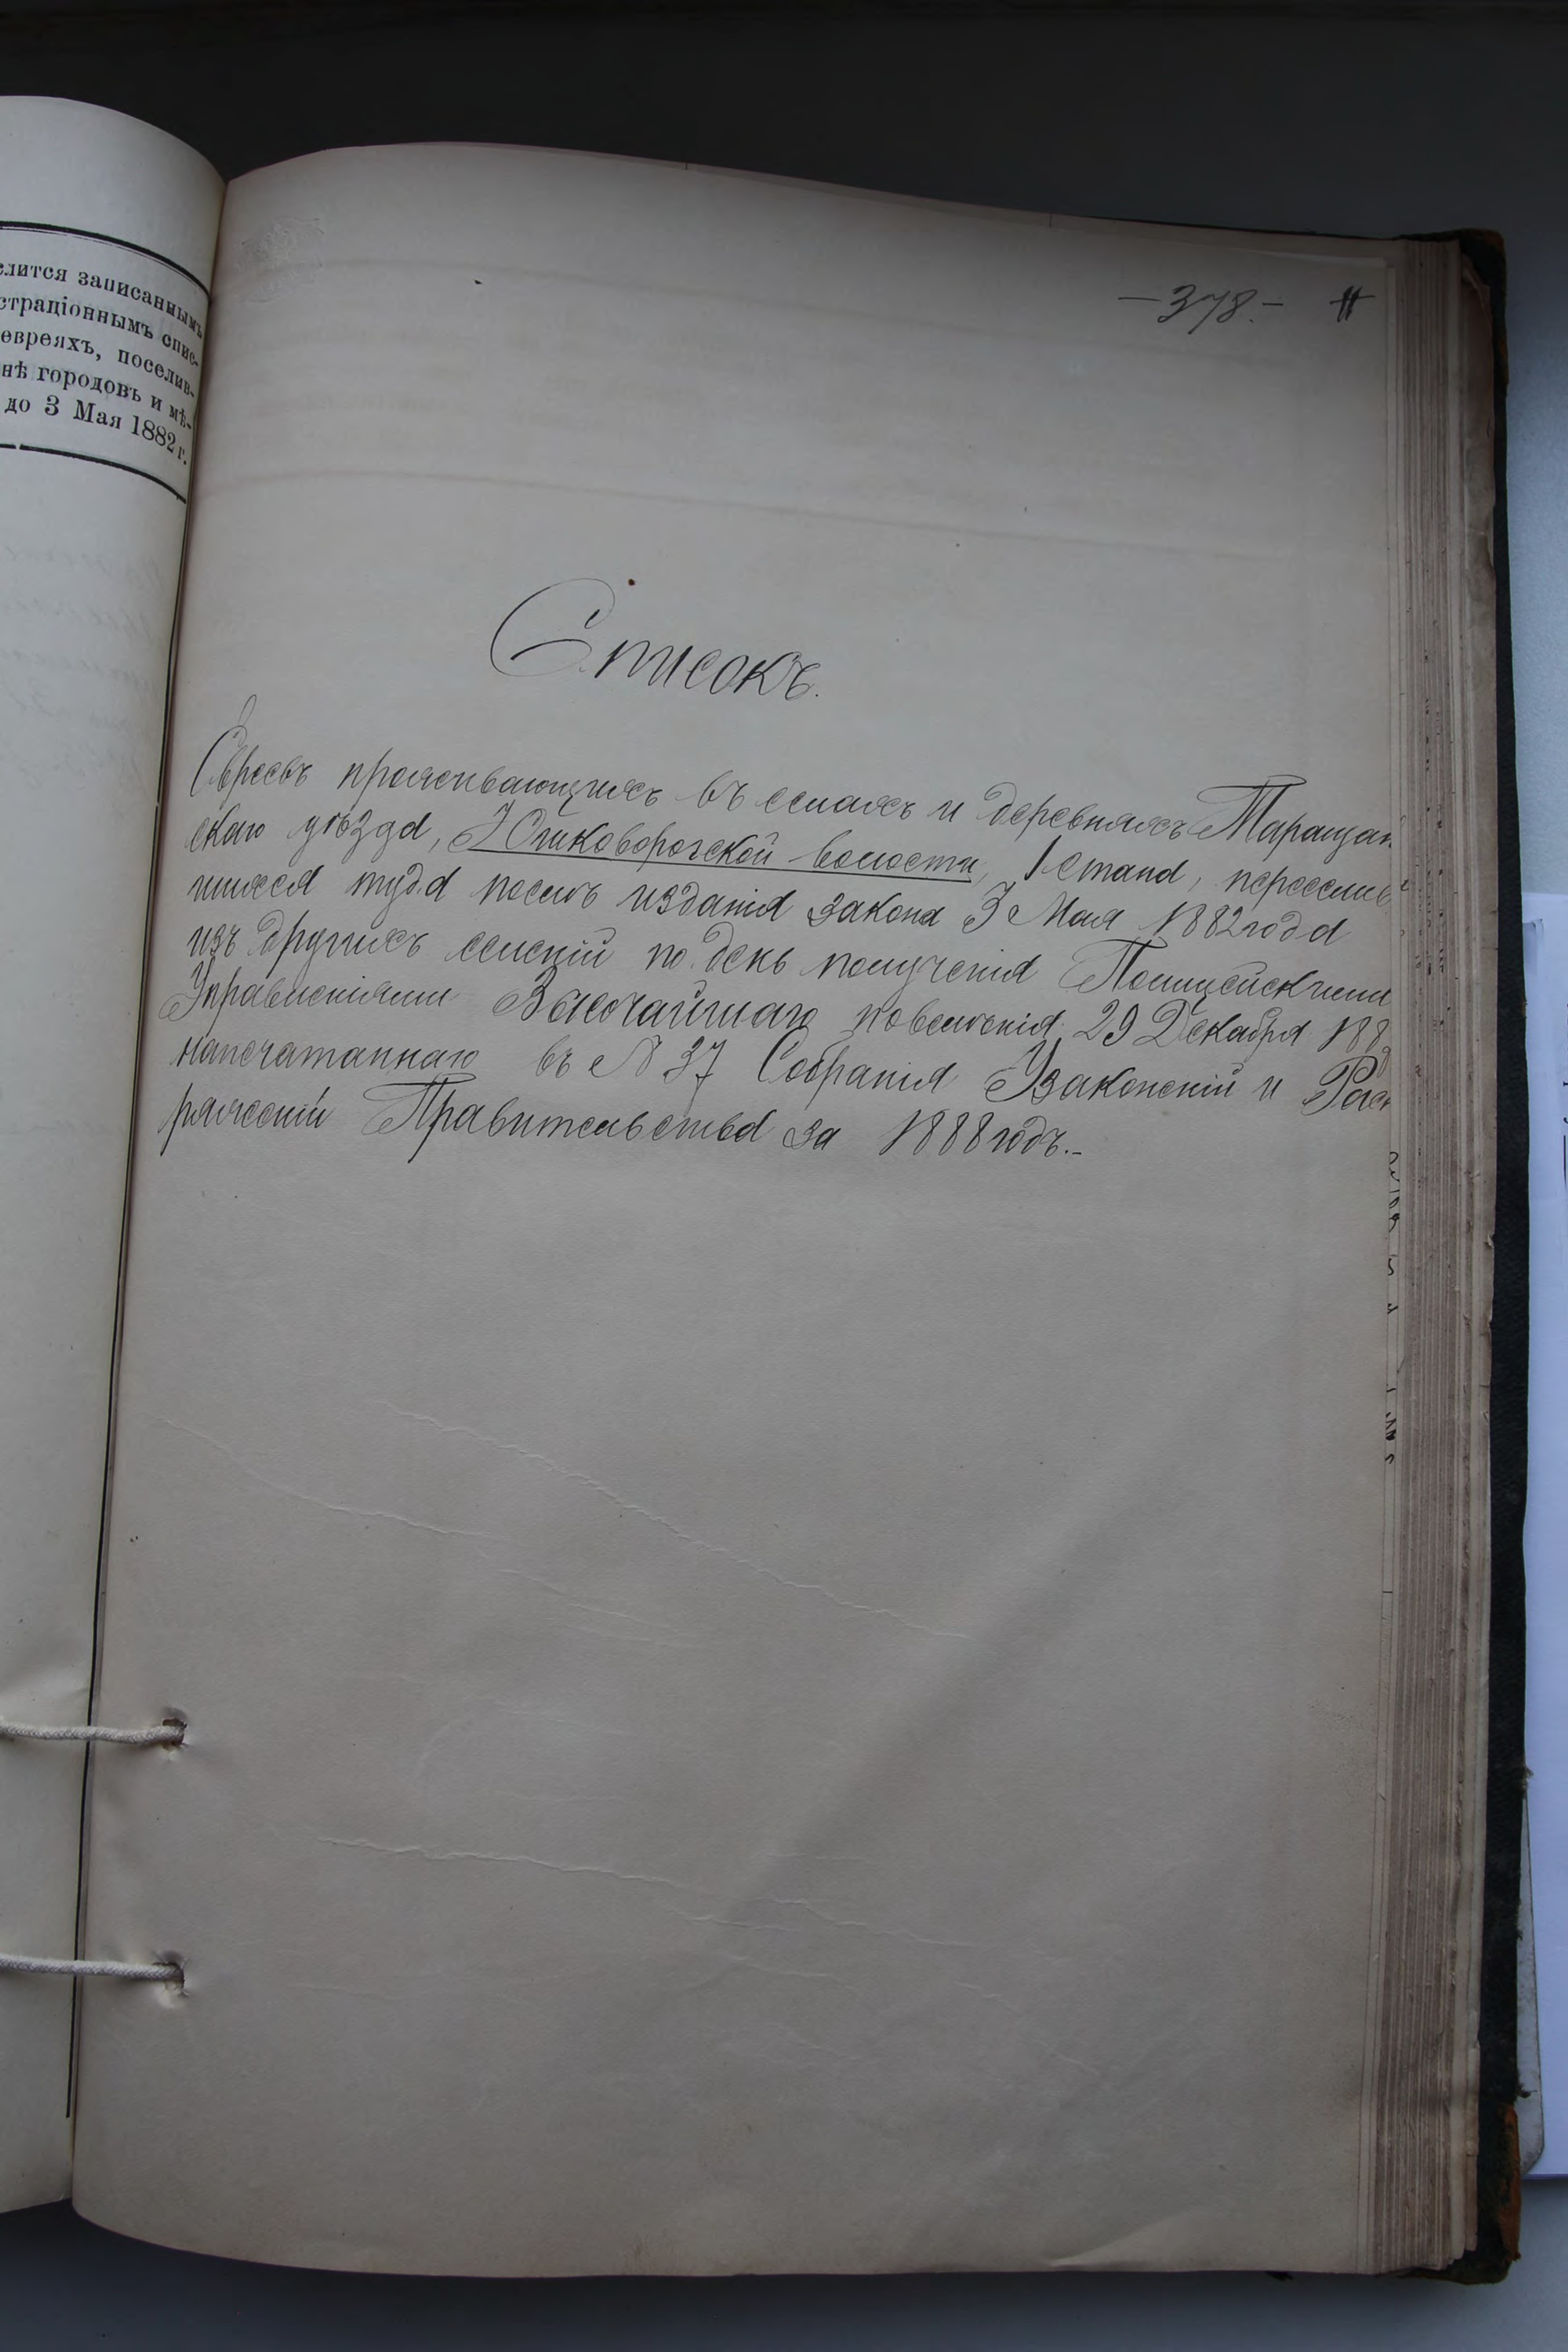 елится записаннымъ
страціоннымъ спис-
евреяхъ, поселив-
нѣ городовъ и мѣ-
до 3 Мая 1882 г.
—378.—
Списокъ.
Евреевъ проживающихъ въ селахъ и деревняхъ Таращан
скаго уѣзда, волости, 1 стана, переселив
шихся туда послѣ изданія закона 3 Мая 1882 года
изъ другихъ селеній по день полученія Полицейскими
Управленіями Высочайшаго повелѣнія 29 Декабря 188
напечатаннаго въ № 37 Собранія Узаконеній и Расп
ряженій Правительства за 1888 годъ.-